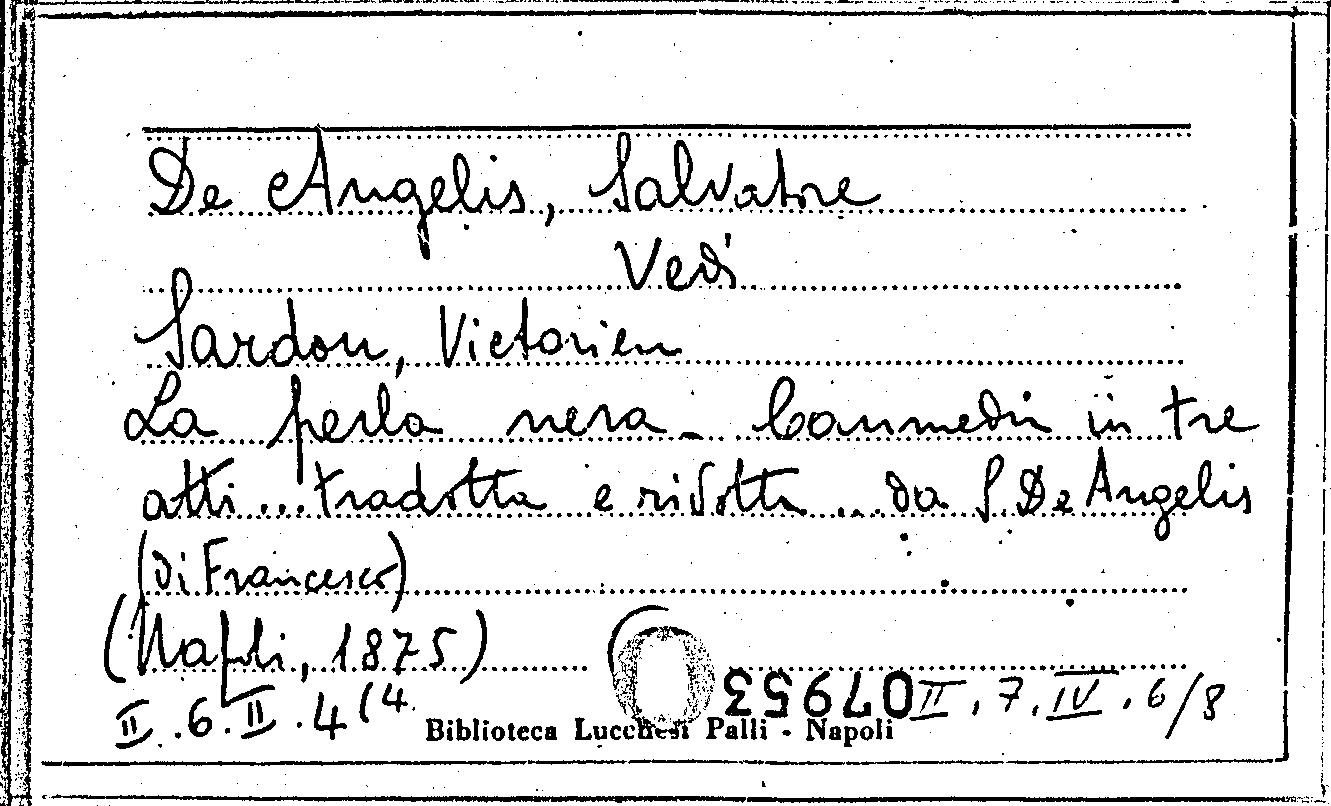 De Angelis, Salvatore
Vedi
Sardou, Victorien
La perla nera. Commedia in tre
atti...tradotta e ridotta...da S. De Angelis
(di Francesco)
(Napoli, 1875)
II.6.II.4(4 07953 II.7.IV.6/8
Biblioteca Lucchesi Palli - Napoli